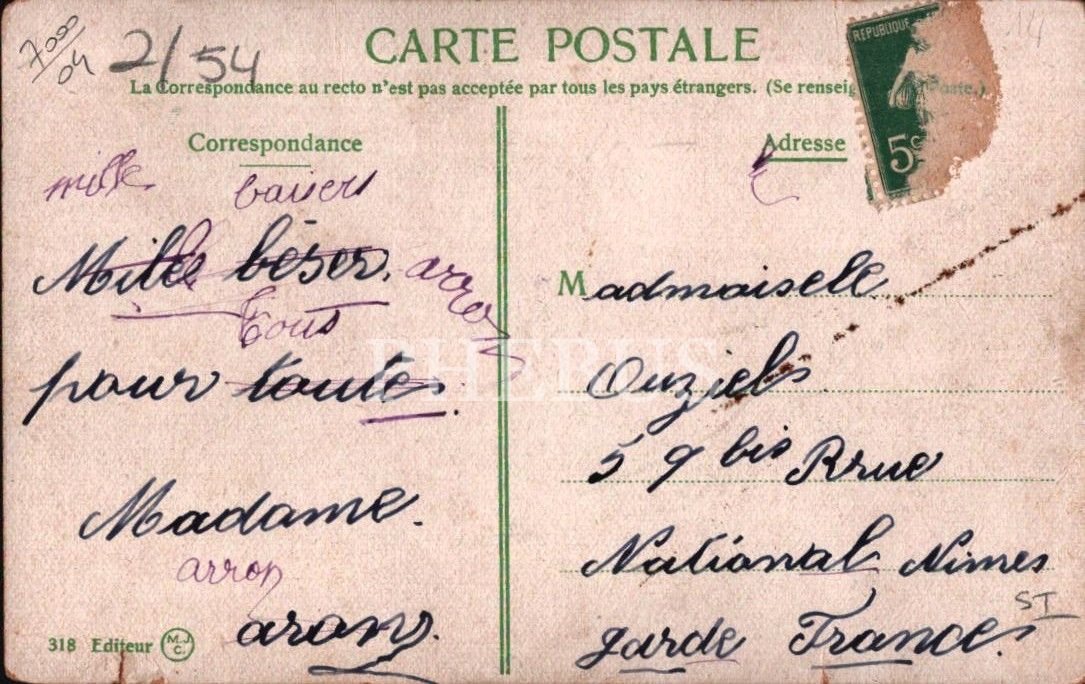 7000
04
2/54
CARTE POSTALE
La Correspondance au recto n'est pas acceptée par tous les pays étrangers. (Se renseig
REPUBLIQUE
5c
Correspondance
Adresse
mille baisers
Mille béser.
arron
tous
pour toutes.
Madame.
arron
arong.
318 Editeur M.J.C.
Madmaiselle
Ouziels
59 bis Rrue
National Nimes
garde Frances
ST
PHEBUS